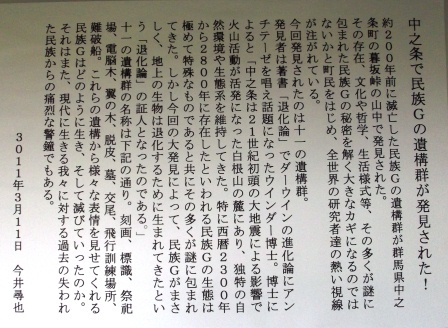 中之条で民族Gの遺構群が発見された！
約200年前に滅亡した民族Gの遺構群が群馬県中之
条町の暮坂峠の山中で発見された。
その存在、文化や哲学、生活様式等、その多くが謎に
包まれた民族Gの秘密を解く大きなカギになるのでは
ないかと町民をはじめ、全世界の研究者達の熱い視線
が注がれている。
今回発見されたのは十一の遺構群。
発見者は著書「退化論」でダーウインの進化論にアン
チテーゼを唱え話題になったウインダー博士。博士に
よると「中之条は21世紀初頭の大地震による影響で
火山活動が活発になった白根山の麓にあり、独特の自
然環境や生態系を維持してきた。特に西暦2300年
から2800年に存在したといわれる民族Gの生態は
極めて特殊なものであると共にその多くが謎に包まれ
てきた。しかし今回の大発見によって、民族Gがまさ
しく、地上の生物は退化するために生まれてきたとい
う「退化論」の証人となったのである。」
十一の遺構群の名称は下記の通り。刻画、標識、祭祀
場、電脳木、翼の木、脱皮、墓、交尾、飛行訓練場所、
難破船。これらの遺構から様々な表情を見せてくれる
民族Gはどのように生き、そして滅びていったのか。
それはまた、現代に生きる我々に対する過去の失われ
た民族からの痛烈な警鐘でもある。
3011年3月11日　今井尋也